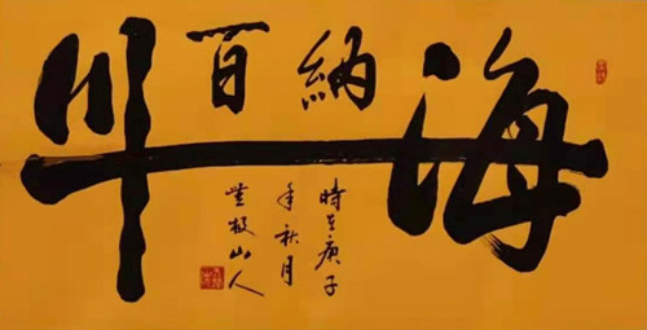 海納百川
時在庚子
年秋月
無極山人